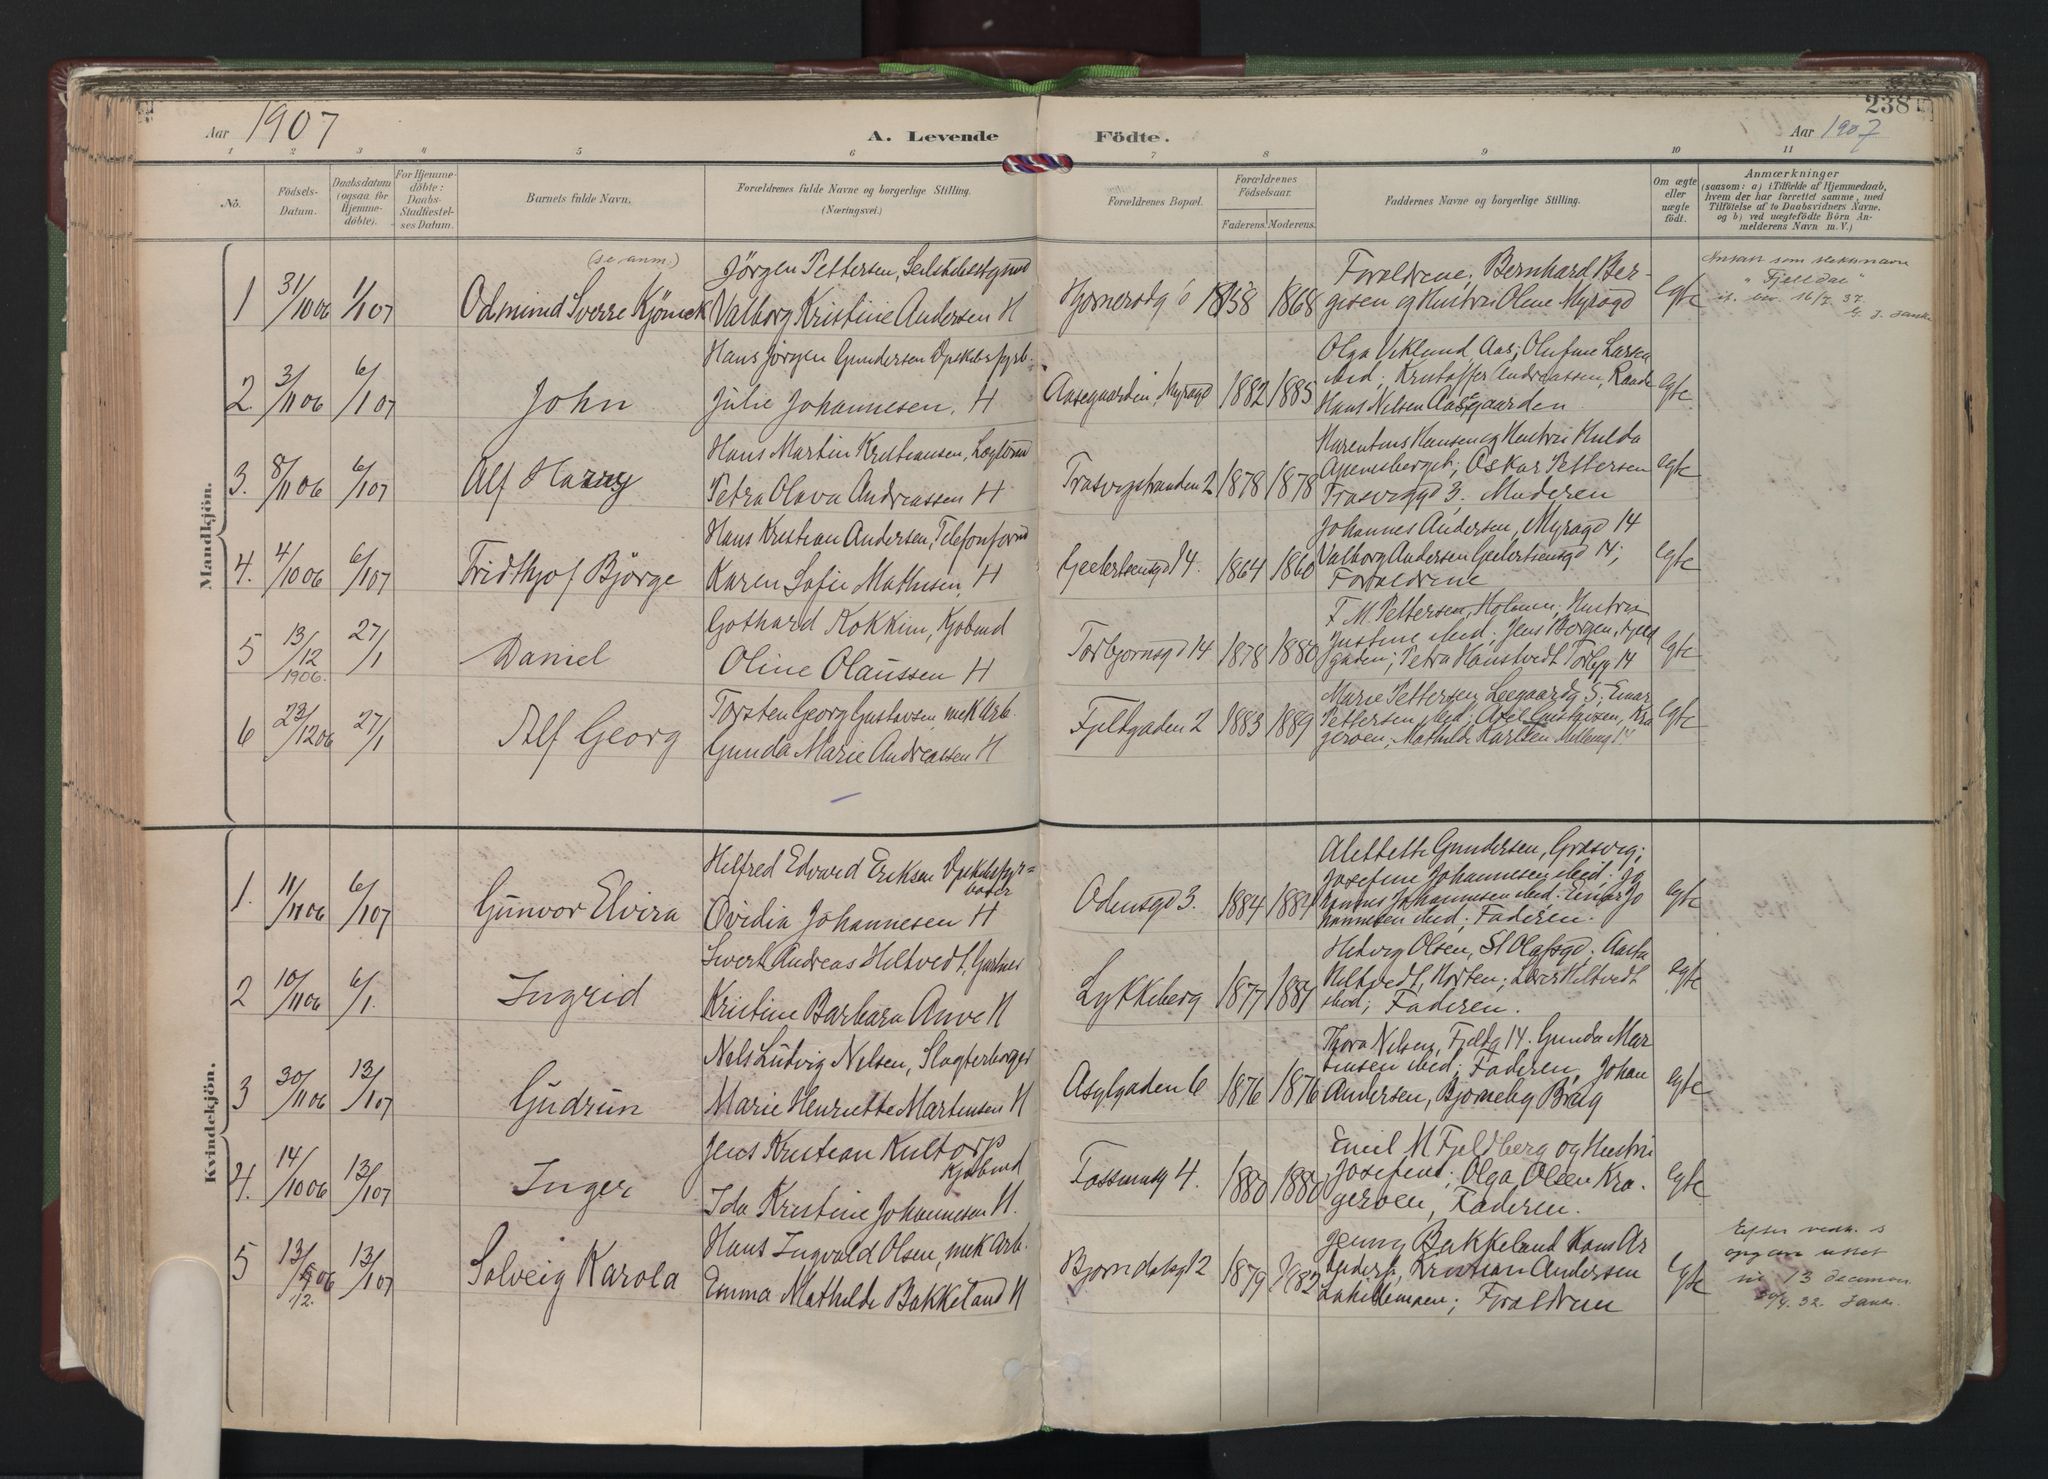 238
Aar 1907
A. Levende Födte.
Aar 1907
1 2 3 4 5 6 7 8 9 10 11
No.
Födsels-Datum.
Daabsdatum (ogsaa for Hjemmedöbte).
For Hjemmedöbte: Daabs-Stadfæstelses Datum.
Barnets fulde Navn.
Forældrenes fulde Navne og borgerlige Stilling.
(Næringsvei.)
Forældrenes Bopæl.
Forældrenes Födselsaar.
Faderens. Moderens.
Faddernes Navne og borgerlige Stilling.
Om ægte eller uægte födt.
Anmærkninger
(saasom: a) i Tilfælde af Hjemmedaab, hvem der har forrettet samme, med Tilföielse af to Daabsvidners Navne. og b) ved uægtefödte Börn Anmelderens Navn m. V.)
Mandkjön.
(se anm.)
1 31/10 06 1/1 07 Odmund Sverre
Jörgen Pettersen,
Valborg Kristine Andersen H
1858 1868
Foraldrene, Bernhard Bergersen og Hustru Olene Myragd
Egte
"Fjelldal"
16/7. 37.
2. 3/11 06 6/1 07 John
Hans Jörgen Gundersen
Julie Johannesen, H
Aasegaarden, Myragd 1882 1885
Olga Viklund, Aas; Olufine Larsen
ibid; Kristoffer Andreassen,
Hans Nelsen Aasegaarden
Egte
3. 8/11 06 6/1 07 Alf Harry
Hans Martin Kristiansen,
Petra Olava Andreassen H
Trosvigstranden 2 1878 1878
Marentius Hansen og Hustru Hulda
Apenesberget; Oskar Pettersen
Trosviggd 3. Moderen
Egte
4. 4/10 06 6/1 07 Fridthjof Björge
Hans Kristian Andersen,
Karen Sofie Mathisen, H
14. 1864 1860
Johannes Andersen, Myragd 14
Valborg Andersen 14;
Foraldrene
Egte
5 13/12 1906. 27/1 Daniel
Gothard Kokkim, Kjobmd
Oline Olaussen H
Torbjornsgd 14 1878 1880
F. M. Pettersen, Holmen; Hustru
Justine ibid; Jens Borgen,
gaden; Petra Hanstvedt Torbjg 14
Egte
6 23/12 06 27/1 Alf Georg
Torsten Georg Gustavsen, mek Arb.
Gunda Marie Andreassen H
Fjeldgaden 2 1883 1889
Marie Pettersen 5; Einar
Pettersen ibid; Axel Gustavsen, Kra
geroen; Mathilde Karlsen
Egte
Kvindekjön.
1. 11/11 06 6/1 07 Gunvor Elvira
Hilfred Edvard Eriksen
Ovidia Johannesen H
Odensgd 3. 1884 1884
Alethette Gundersen, Gräsvig;
Josefine Johannesen ibid; Jo
hannes Johannesen ibid; Einar Jo
hannesen ibid; Faderen.
Egte
2 10/11 06 6/1. Ingrid
Sivert Andreas Hiltvedt, Gartner
Kristine Barbara H
Lykkeberg 1877 1881
Hedvig Olsen, St Olafsgd; Aasta
Hiltvedt, Horten; Hiltvedt
ibid; Faderen.
Egte
3 30/11 06 13/1 07 Gudrun
Nels Ludvig Nelsen,
Marie Henriette Martinsen H
Asylgaden 6 1876 1876
Thora Nilsen, Fjeldg 14. Gunda Mar
tinsen ibid; Faderen, Johan
Andersen, Bjorneby Brug
Egte
4. 14/10 06 13/1 07 Inger
Jens Kristian Kultorp
Kjobmd
Ida Kristine Johannesen H.
Fossumsg 4. 1880 1880
Emil M Fjeldberg og Hustru
Josefine; Olga Olsen Kra.
geroen, Faderen.
Egte
5 13/ 06 12. 13/1 07 Solveig Karola
Hans Ingvald Olsen, mek Arb.
Emma Mathilde Bakkeland H
Bjorndalsgd 2 1879 1882
Jenny Bakkeland
Kristian Andersen
Foraldrene
Egte
Efter
13 decemb.
32.